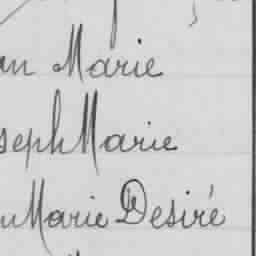 an Marie
seph Marie
u Marie Desiré